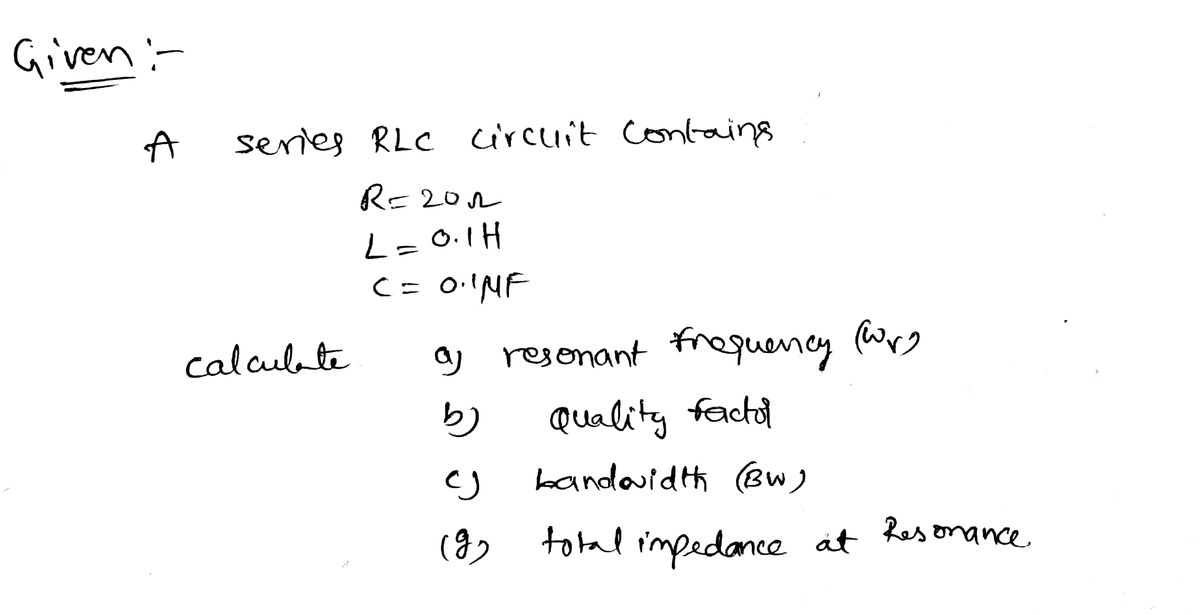 Given :-
A series RLC circuit contains
R = 20Ω
L = 0.1H
C = 0.1μF
calculate a) resonant frequency (ωr)
b) Quality factor
c) bandwidth (BW)
(g) total impedance at Resonance